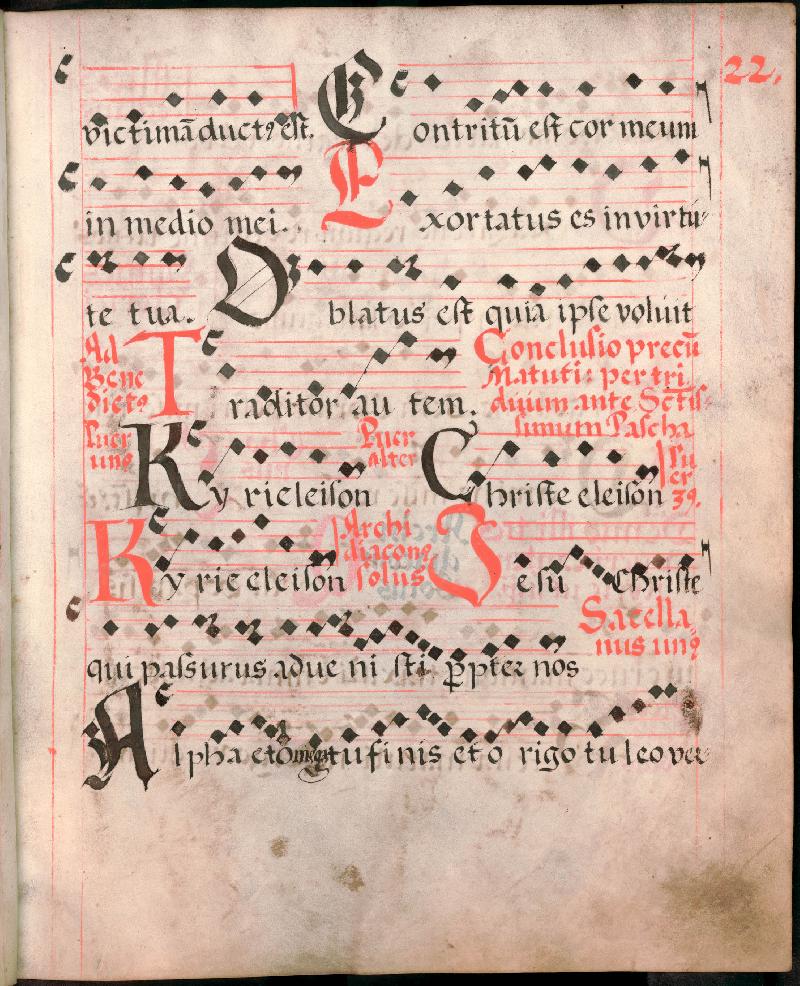 22.
victimā duct9 est. Contritū est cor meum
in medio mei. Exortatus es in virtu
te tua. Oblatus est quia ipse voluit
Ad Bene dict9 Traditor au tem. Conclusio precū
Matuti: per tri
duum ante Sctis
simum Pascha
Puer un9 Ky rieleison Puer alter Christe eleison Pu er 39.
Ky rie eleison Archi diacon9 solus Iesu Christe
qui passurus adue ni sti ꝓpter nos Sacella nus un9
Alpha et omega tu finis et o rigo tu leo ver